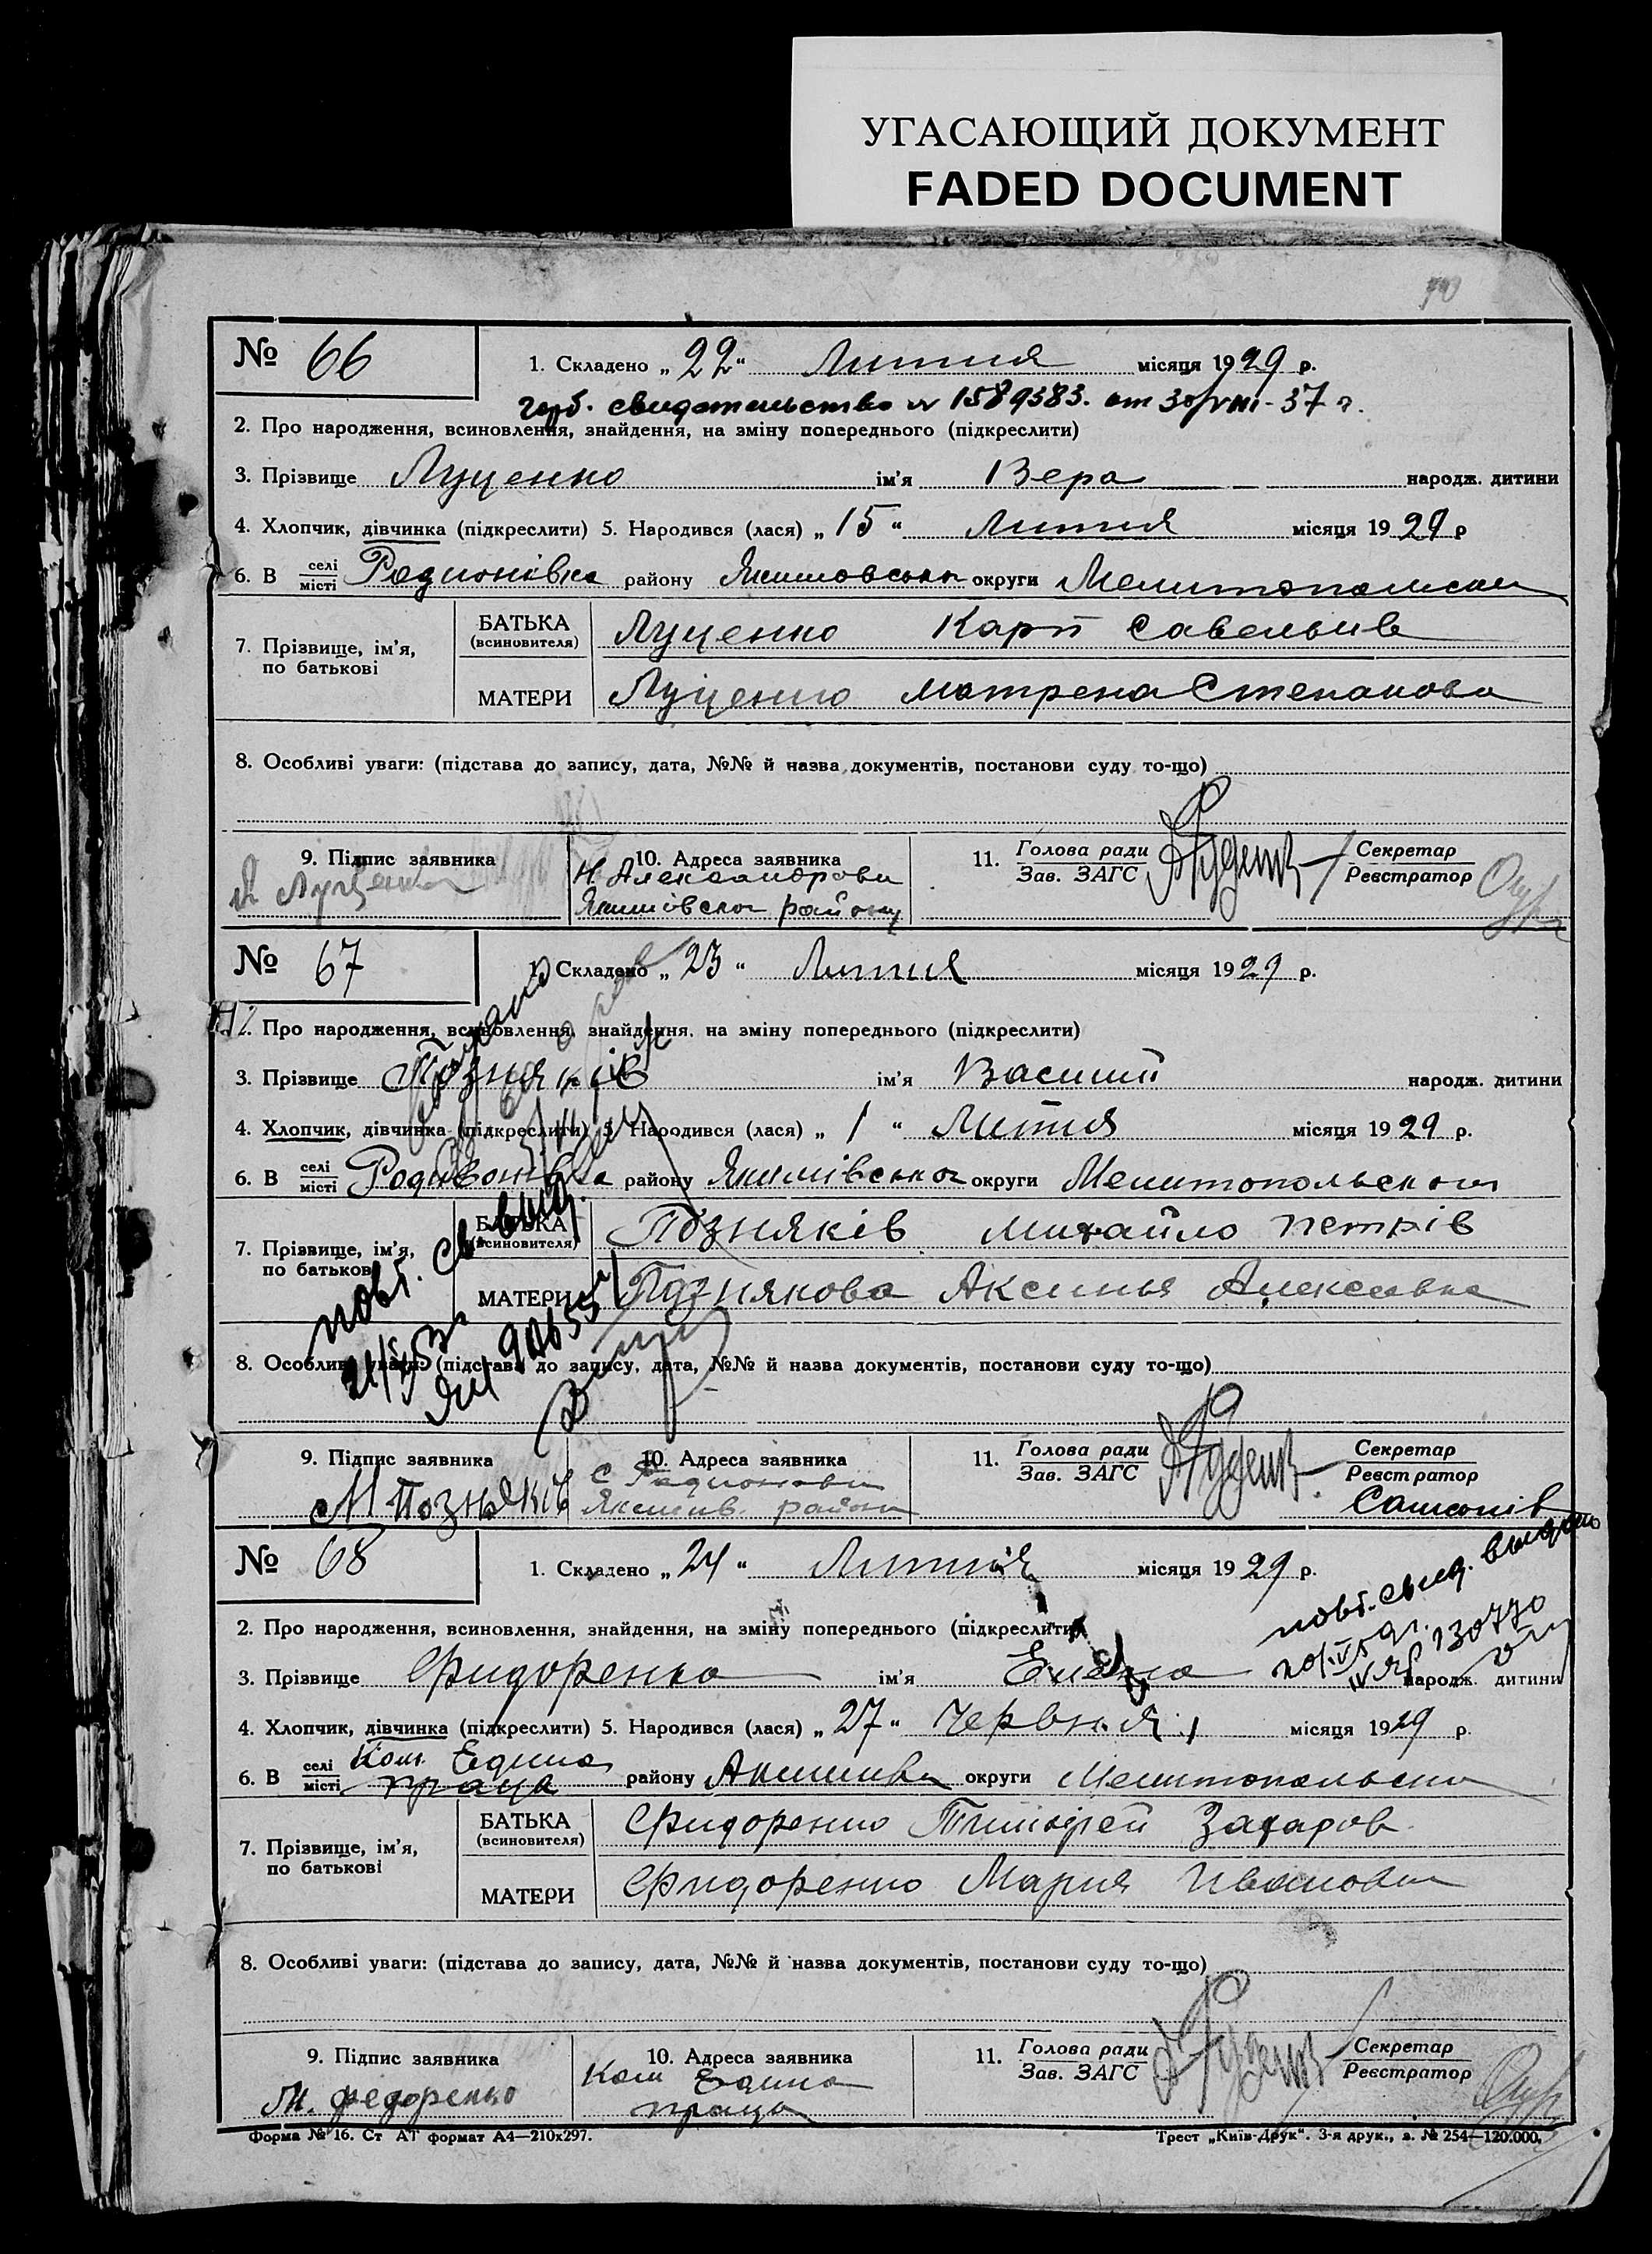 УГАСАЮЩИЙ ДОКУМЕНТ
FADED DOCUMENT
№ 66
1. Складено „ 22 “ Липня місяця 1929 р.
герб. свидетельство № 1589383. от 30/VIII - 37 г.
2. Про народження, всиновлення, знайдення, на зміну попереднього (підкреслити)
3. Прізвище Луценко ім'я Вера народж. дитини
4. Хлопчик, дівчинка (підкреслити) 5. Народився (лася) „ 15 “ Липня місяця 1929 р
6. В селі місті Родионівка району Якимовсько округи Мелитопольськ
7. Прізвище, ім'я, по батькові
БАТЬКА (всиновителя) Луценко Карп Савельив
МАТЕРИ Луценко Матрена Степанова
8. Особливі уваги: (підстава до запису, дата, №№ й назва документів, постанови суду то-що)
9. Підпис заявника
Луценко
10. Адреса заявника
Н Александровк
Якимовског району
11. Голова ради Зав. ЗАГС
Секретар Реєстратор
№ 67
1. Складено „ 23 “ Липня місяця 1929 р.
2. Про народження, всиновлення, знайдення, на зміну попереднього (підкреслити)
3. Прізвище Позняків ім'я Василий народж. дитини
4. Хлопчик, дівчинка (підкреслити) 5. Народився (лася) „ 1 “ Липня місяця 1929 р.
6. В селі місті Родивонівка району Якимівського округи Мелитопольського
7. Прізвище, ім'я, по батькові
БАТЬКА (всиновителя) Позняків Михайло Петрів
МАТЕРИ Познякова Аксинья Алексевна
повт. св. выд.
8. Особливі уваги: (підстава до запису, дата, №№ й назва документів, постанови суду то-що)
9. Підпис заявника
М Позняків
10. Адреса заявника
с Радионовк
Якимив. район
11. Голова ради Зав. ЗАГС
Секретар Реєстратор
Самсонів
№ 68
1. Складено „ 24 “ Липня місяця 1929 р.
повт. свид. выдано
2. Про народження, всиновлення, знайдення, на зміну попереднього (підкреслити)
130770
3. Прізвище Фидоренко ім'я Елена народж. дитини
4. Хлопчик, дівчинка (підкреслити) 5. Народився (лася) „ 27 “ Червня місяця 1929 р.
6. В селі місті Ком. Едина праця району Акимивк округи Мелитопольськ
7. Прізвище, ім'я, по батькові
БАТЬКА (всиновителя) Фидоренко Тимофей Захаров
МАТЕРИ Фидоренко Мария Ивановн
8. Особливі уваги: (підстава до запису, дата, №№ й назва документів, постанови суду то-що)
9. Підпис заявника
Федоренко
10. Адреса заявника
Ком Едина
праця
11. Голова ради Зав. ЗАГС
Секретар Реєстратор
Форма № 16. Ст АТ формат А4—210x297.
Трест „Київ-Друк“. 3-я друк., з. № 254—120.000.